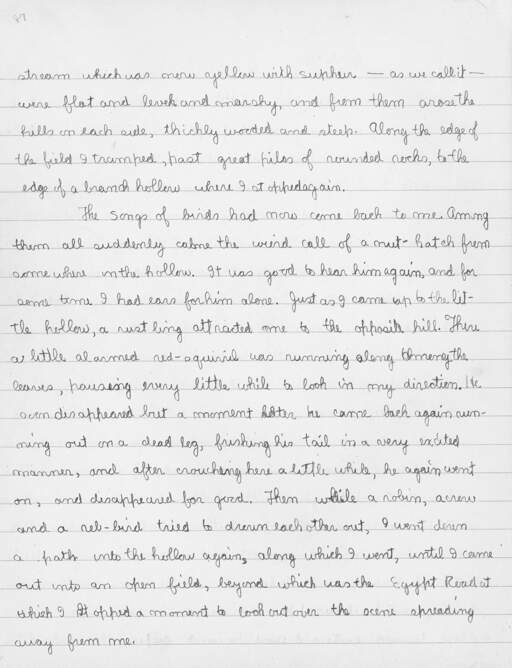 87
stream which was now yellow with sulpher — as we call it —
were flat and level and marshy, and from them arose the
hills on each side, thickly wooded and steep. Along the edge of
the field I tramped, past great piles of rounded rocks, to the
edge of a branch hollow where I stopped again.
The songs of birds had now come back to me. Among
them all suddenly came the weird call of a nut-hatch from
somewhere in the hollow. It was good to hear him again, and for
some time I had ears for him alone. Just as I came up to the lit-
tle hollow, a rustling attracted me to the opposite hill. There
a little alarmed red-squirril was running along among the
leaves, pausing every little while to look in my direction. He
soon disappeared but a moment later he came back again run-
ning out on a dead log, frisking his tail in a very excited
manner, and after crouching here a little while, he again went
on, and disappeared for good. Then while a robin, a crow
and a rel-bird tried to drown each other out, I went down
a path into the hollow again, along which I went, until I came
out into an open field, beyond which was the Egypt Road at
which I stopped a moment to look out over the scene spreading
away from me.